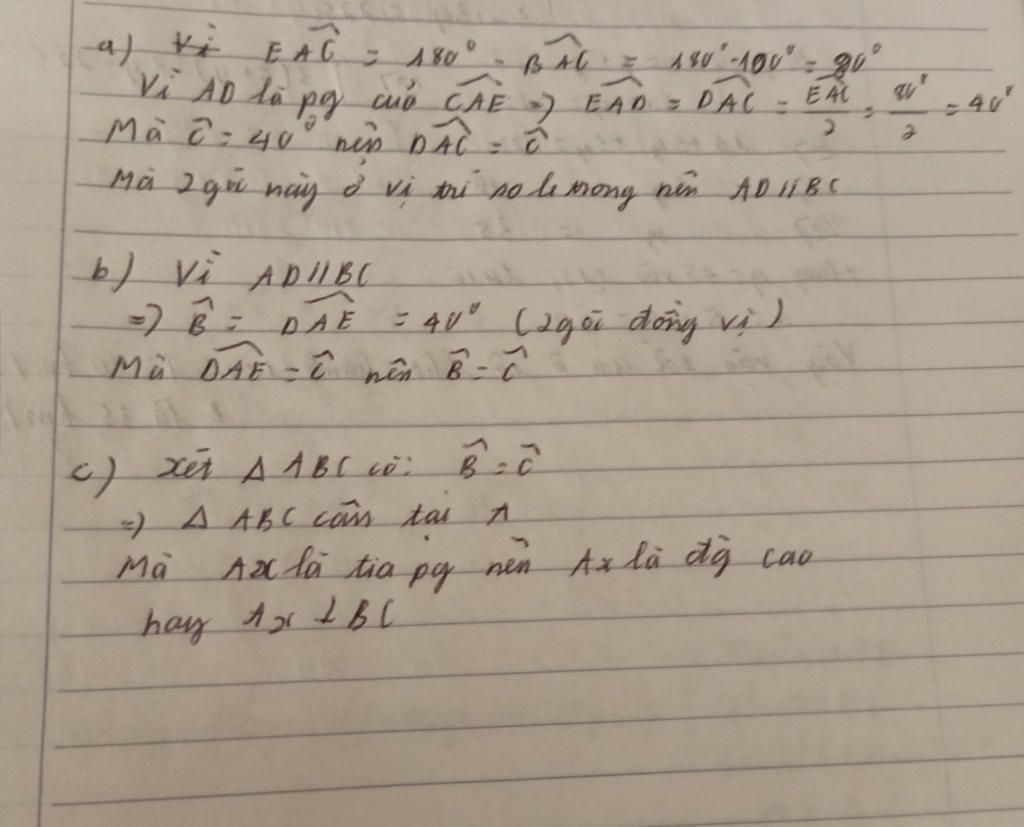 a) Vì EAC = 180° - BAC = 180° - 100° = 80°
Vì AD là pg của CAE => EAD = DAC = EAC/2 = 80°/2 = 40°
Mà C = 40° nên DAC = C
Mà 2 góc này ở vị trí so le trong nên AD // BC
b) Vì AD // BC
=> B = DAE = 40° (2 góc đồng vị)
Mà DAE = C nên B = C
c) xét Δ ABC có: B = C
=> Δ ABC cân tại A
Mà Ax là tia pg nên Ax là đg cao
hay Ax ⊥ BC